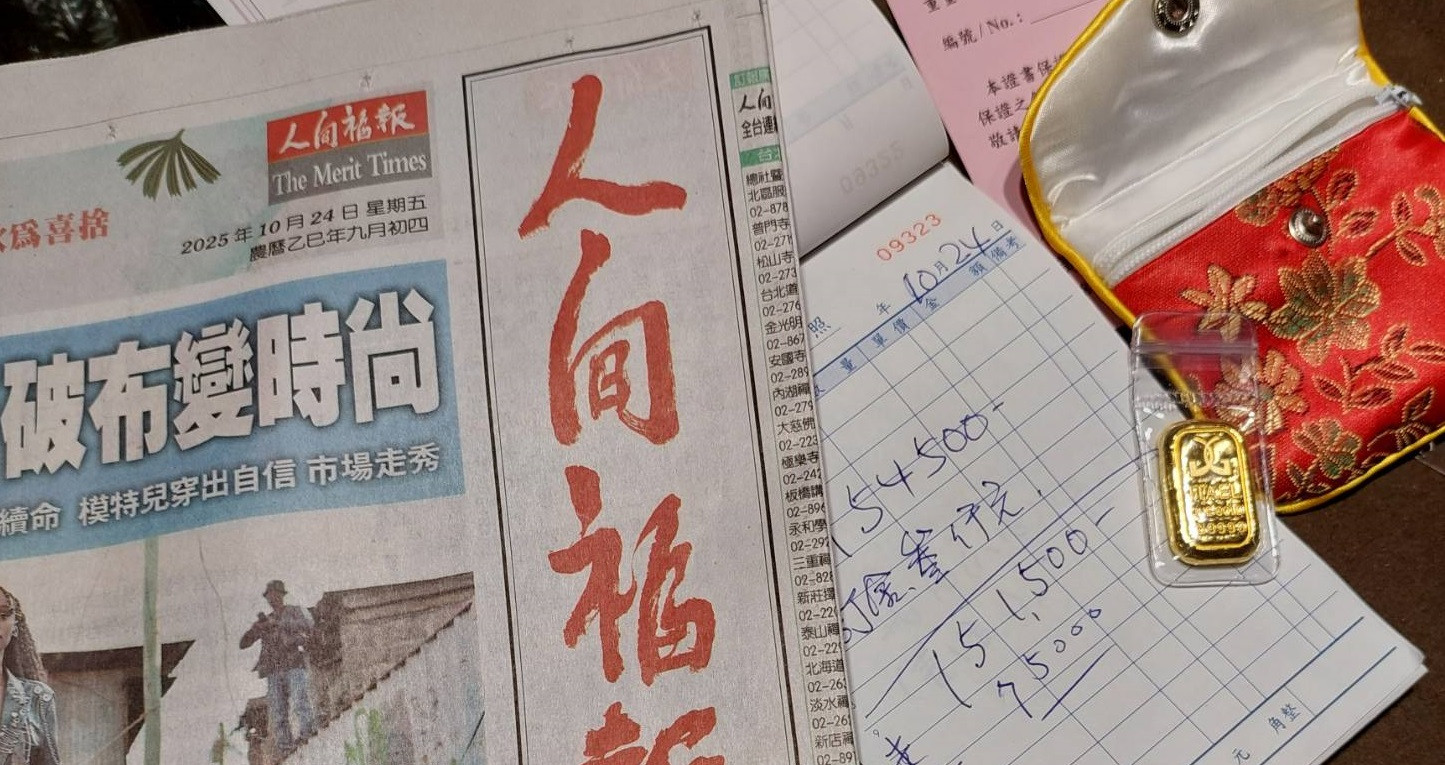 人間福報
The Merit Times
2025 年 10 月 24 日 星期五
農曆乙巳年九月初四
為喜捨
破布變時尚
續命 模特兒穿出自信 市場走秀
人間福報
人間
全台連
台北
總社暨
北區服
02-878
普門寺
02-271
松山寺
02-273
台北道
02-276
金光明
02-867
安國寺
02-289
內湖禪
02-279
大慈佛
02-223
極樂寺
02-242
板橋講
02-896
永和學
02-292
三重禪
02-828
新莊禪
02-22
泰山禪
02-229
北海道
02-263
淡水禪
02-261
新店禪
02-891
編號/No.:
本證書保
保證之
敬請
09323
年 10 月 24 日
量 單價 金 額 備考
154500-
151,500-
75000
元 角整
9999